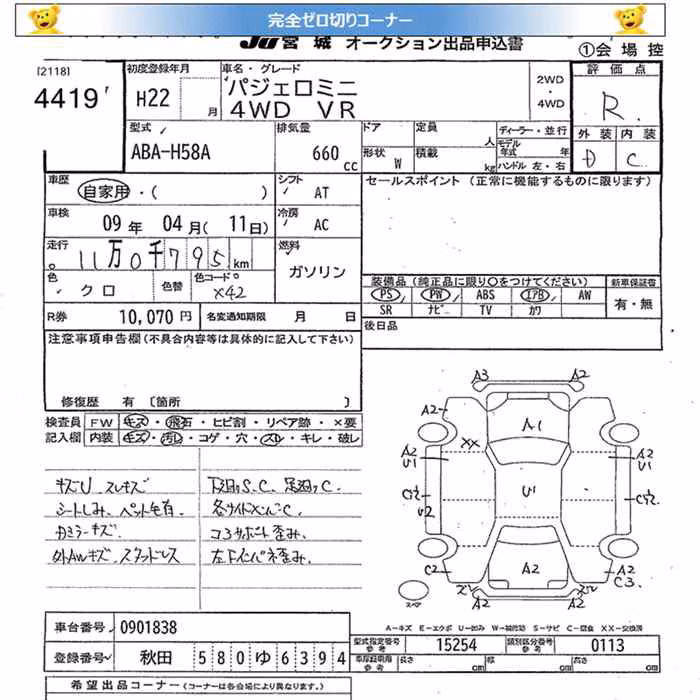 完全ゼロ切りコーナー
JU宮城 オークション出品申込書
①会場控
[2118]
4419
初度登録年月
H22 月
車名・グレード
パジェロミニ
4WD VR
2WD
・
4WD
評価点
R
外装 内装
D C
型式
ABA-H58A
排気量
660 cc
ドア
形状 W
定員 人
積載 kg
ディーラー・並行
モデル年式 年
ハンドル 左・右
車歴
自家用・( )
シフト
AT
セールスポイント (正常に機能するものに限ります)
車検
09年 04月(11日)
冷房
AC
走行
11万0千795km
燃料
ガソリン
色
クロ
色替
色コードO
X42
装備品(純正品に限り○をつけてください)
PS PW ABS エアB AW
SR ナビ TV カワ
新車保証書
有・無
R券 10,070円
名変通知期限 月 日
後日品
注意事項申告欄(不具合内容等は具体的に記入して下さい)
修復歴 有 〔箇所 〕
検査員記入欄
FW キズ・飛石・ヒビ割・リペア跡・×要
内装 キズ・汚レ・コゲ・穴・スレ・キレ・破レ
キズU スレキズ
シートしみ、ペット毛有
カミラーキズ
外AWキズ、スタッドレス
下廻りS、C、足廻りC
各サイドメンバーC
コアサポート歪み
左ドインパネ歪み
A3 A2
A2 A1
XX
A2
U1
A2
U1
U1
C1/2
U2
C1/2
C2 A2 A2
C3
ズレ ズレ
A2 A2
スペア
A-キズ E-エクボ U-凹み W-補修跡 S-サビ C-腐食 XX-交換済
車台番号 0901838
登録番号 秋田 580 ゆ 6394
型式指定番号 参考 15254
類別区分番号 参考 0113
車庫証明用 参考 長さ cm 幅 cm 高さ cm
希望出品コーナー(コーナーは各会場により異なります。)